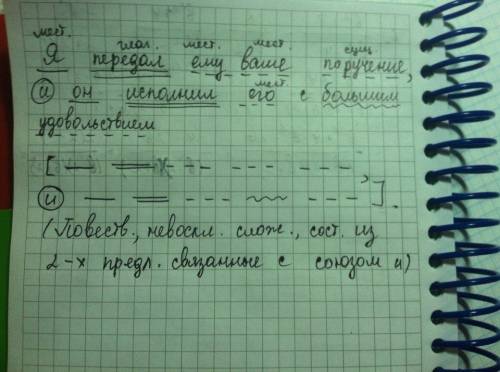 мест.
глаг. мест. мест. сущ.
Я передал ему ваше поручение,
мест.
и он исполнил его с большим
удовольствием
[ , и ].
(Повеств., невоскл. слож., сост. из
2-х предл. связанные с союзом и)